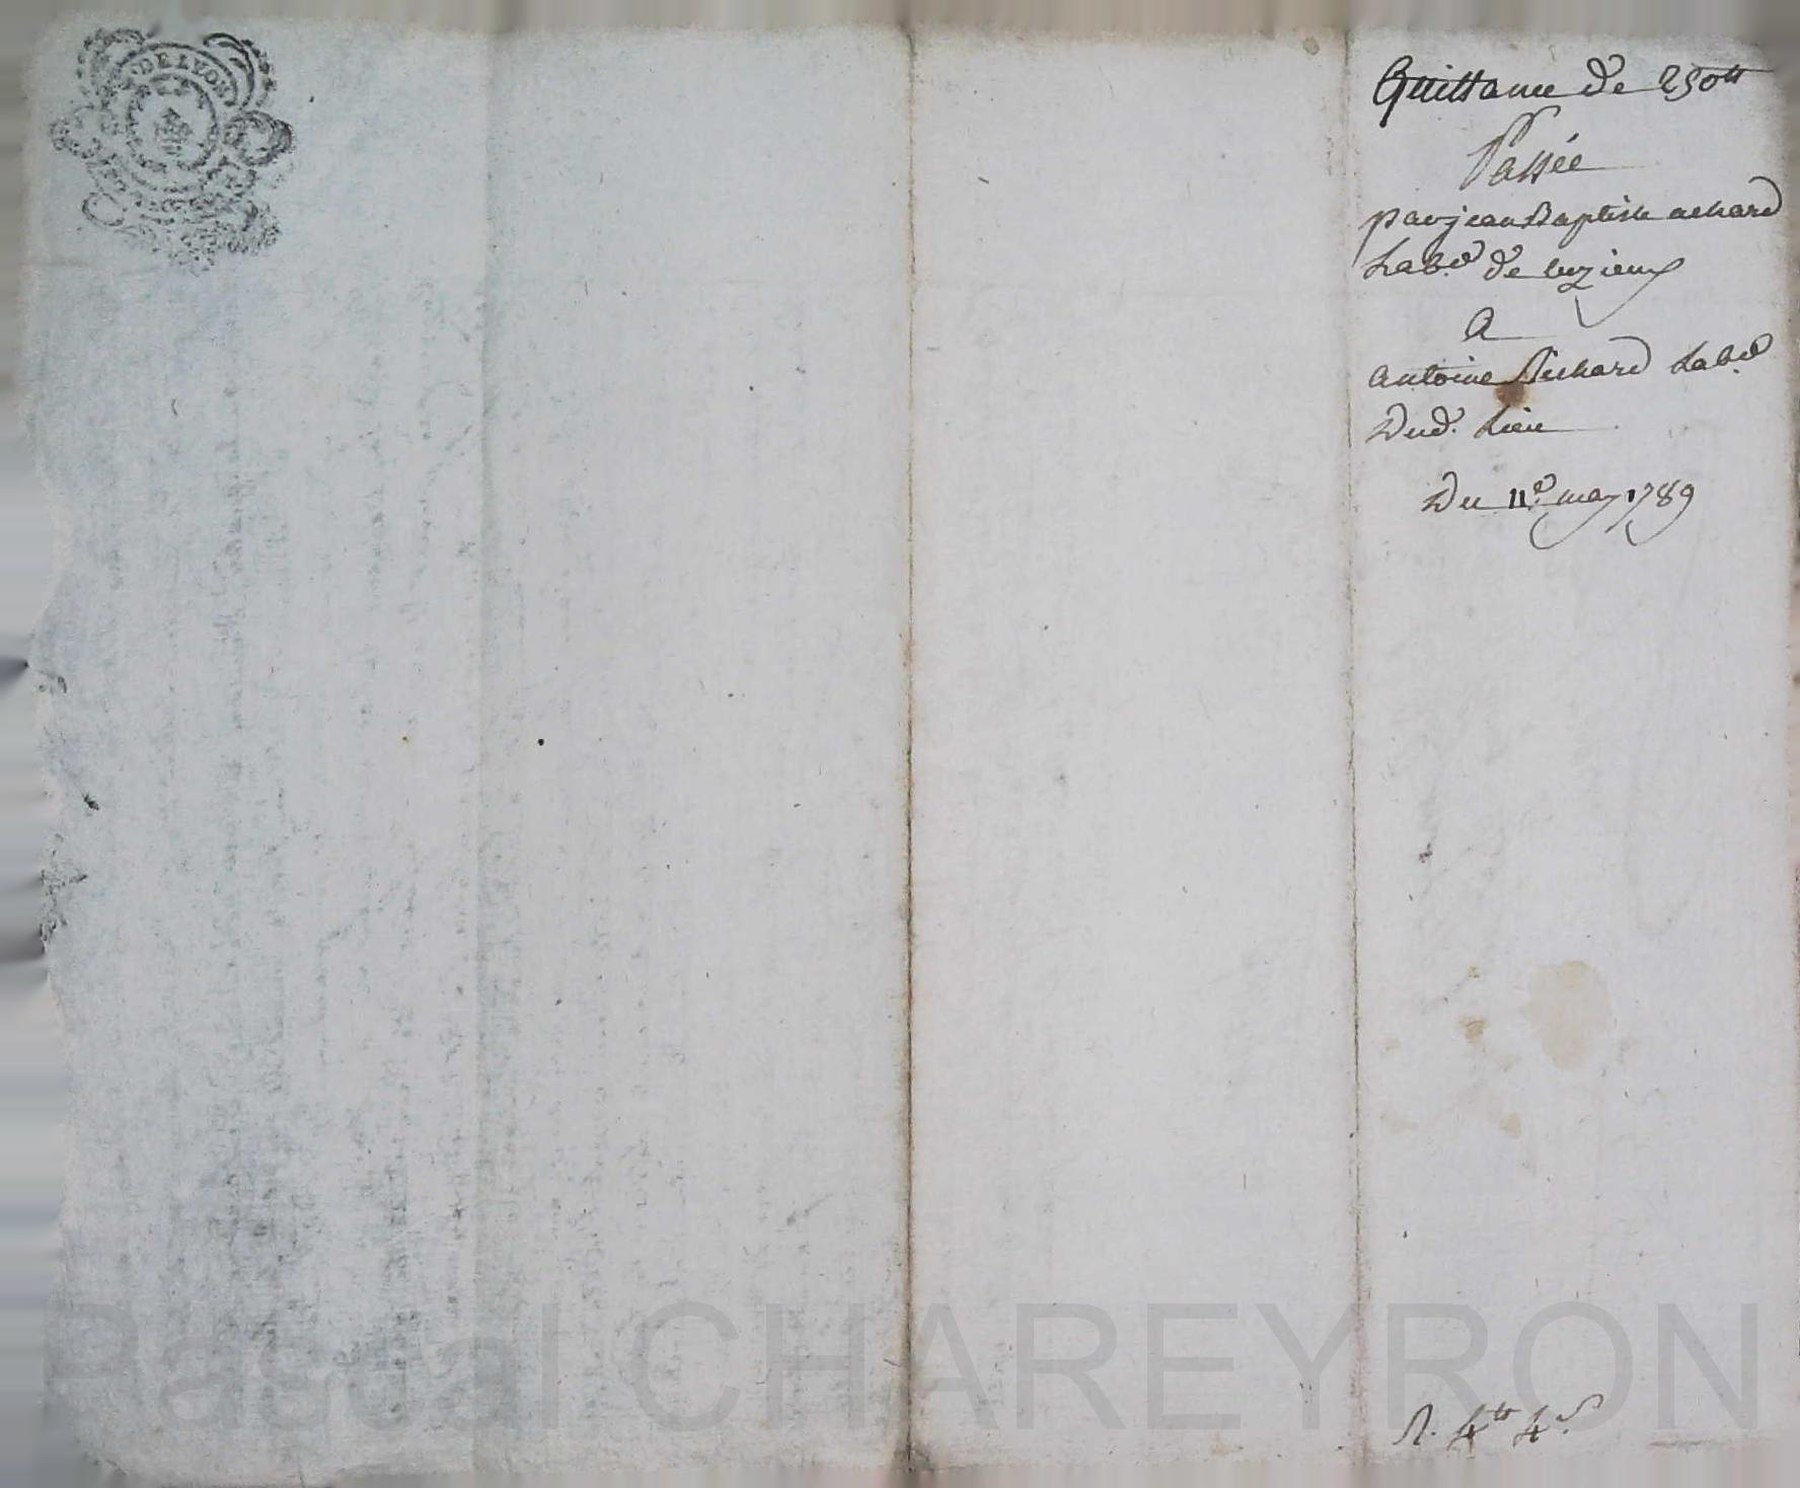 DE LYON
Quittance de 250tt
Passée
par jean Baptiste achard
Labr de luzieux
A
antoine Richard Labr
Dud. Lieu
Du 11e may 1789
R. 4tt 4s
Pascal CHAREYRON